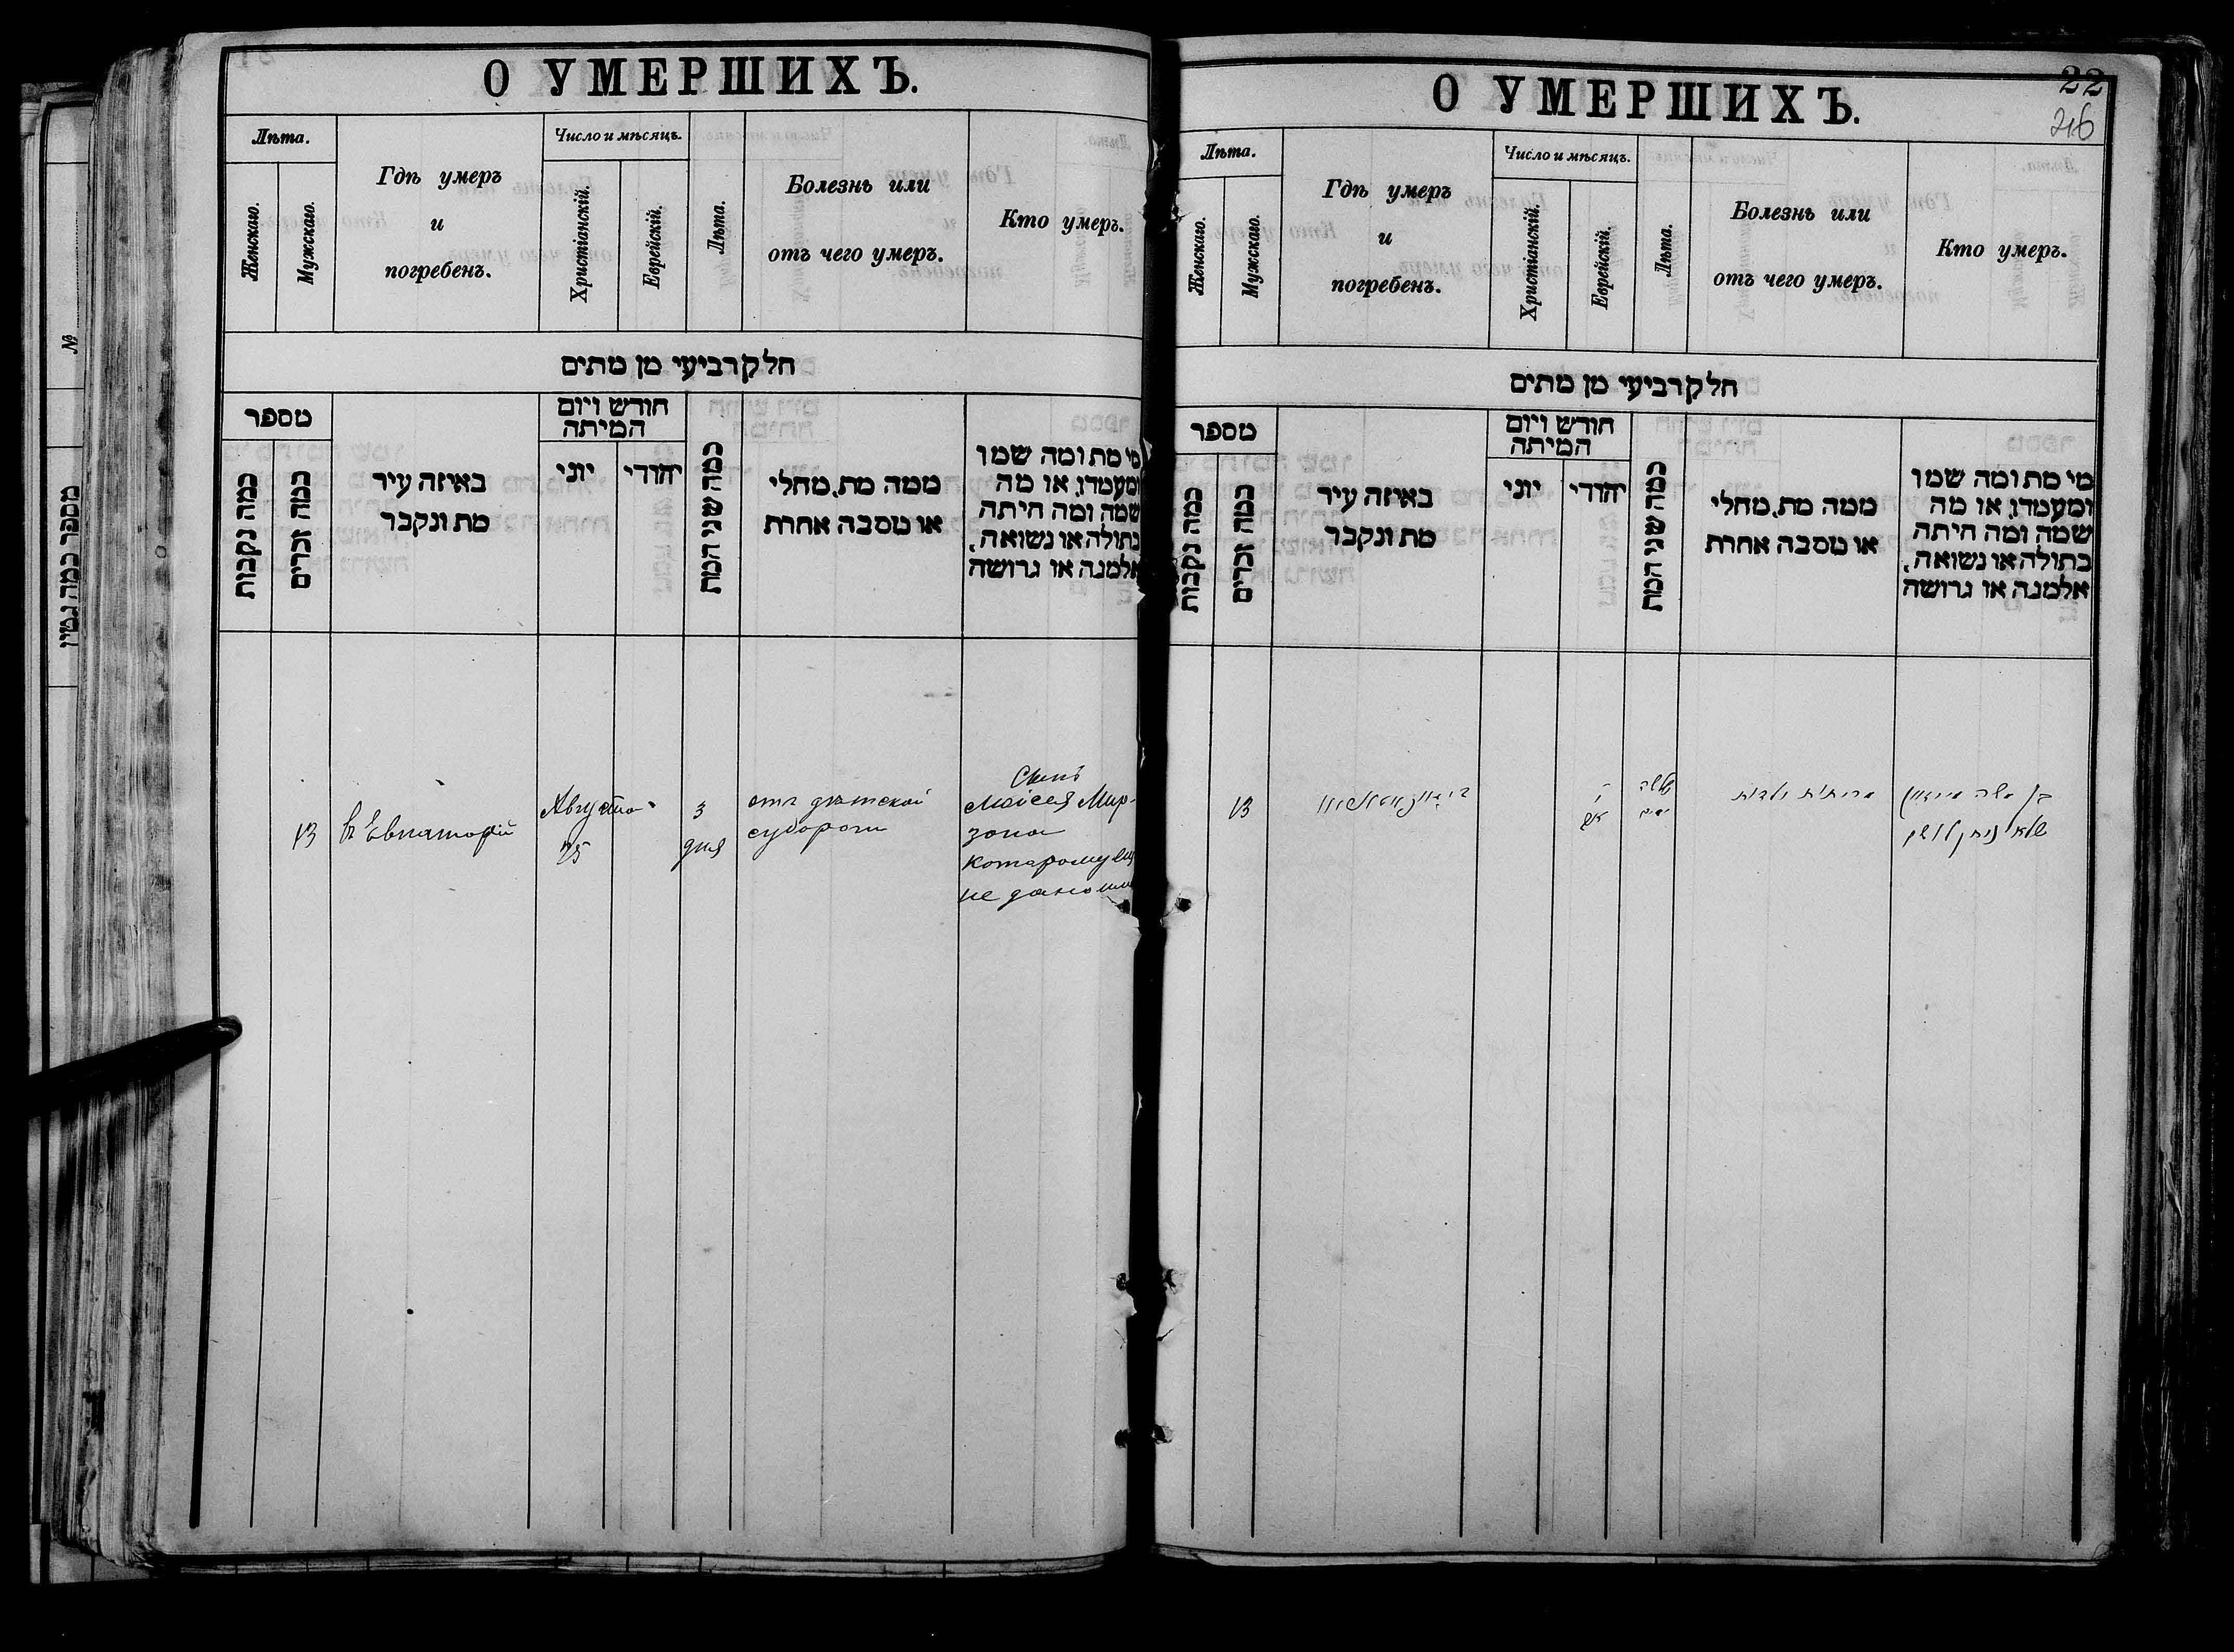 О УМЕРШИХЪ.
Лѣта.
Женскаго.
Мужскаго.
Гдѣ умеръ
и
погребенъ.
Число и мѣсяцъ.
Христіанскій.
Еврейскій.
Лѣта.
Болезнь или
отъ чего умеръ.
Кто умеръ.
חלק רביעי מן מתים
מספר
כמה נקבות
כמה זכרים
באיזה עיר
מת ונקבר
חודש ויום
המיתה
יוני
יהודי
כמה שני המת
ממה מת, מחלי
או מסבה אחרת
מי מת ומה שמו
ומעמדו, או מה
שמה ומה היתה
בתולה או נשואה,
אלמנה או גרושה
13
въ Евпаторій
Августа
25
3
дня
отъ дѣтской
судороги
Сынъ
Моисея Мир-
зона
которому
не дано
№
מספר כמה גטין
О УМЕРШИХЪ.
22
26
Лѣта.
Женскаго.
Мужскаго.
Гдѣ умеръ
и
погребенъ.
Число и мѣсяцъ.
Христіанскій.
Еврейскій.
Лѣта.
Болезнь или
отъ чего умеръ.
Кто умеръ.
חלק רביעי מן מתים
מספר
כמה נקבות
כמה זכרים
באיזה עיר
מת ונקבר
חודש ויום
המיתה
יוני
יהודי
כמה שני המת
ממה מת, מחלי
או מסבה אחרת
מי מת ומה שמו
ומעמדו, או מה
שמה ומה היתה
בתולה או נשואה,
אלמנה או גרושה
13
שלשה
ימים
בן משה מירזון